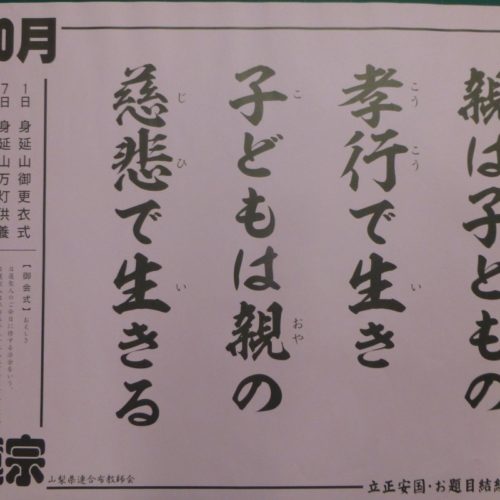 親は子どもの
孝行で生き
子どもは親の
慈悲で生きる
こう こう
い
こ
おや
じ ひ
い
0月
1日 身延山御更衣式
7日 身延山万灯供養
【御会式】おえしき
宗
山梨県連合布教師会
立正安国・お題目結